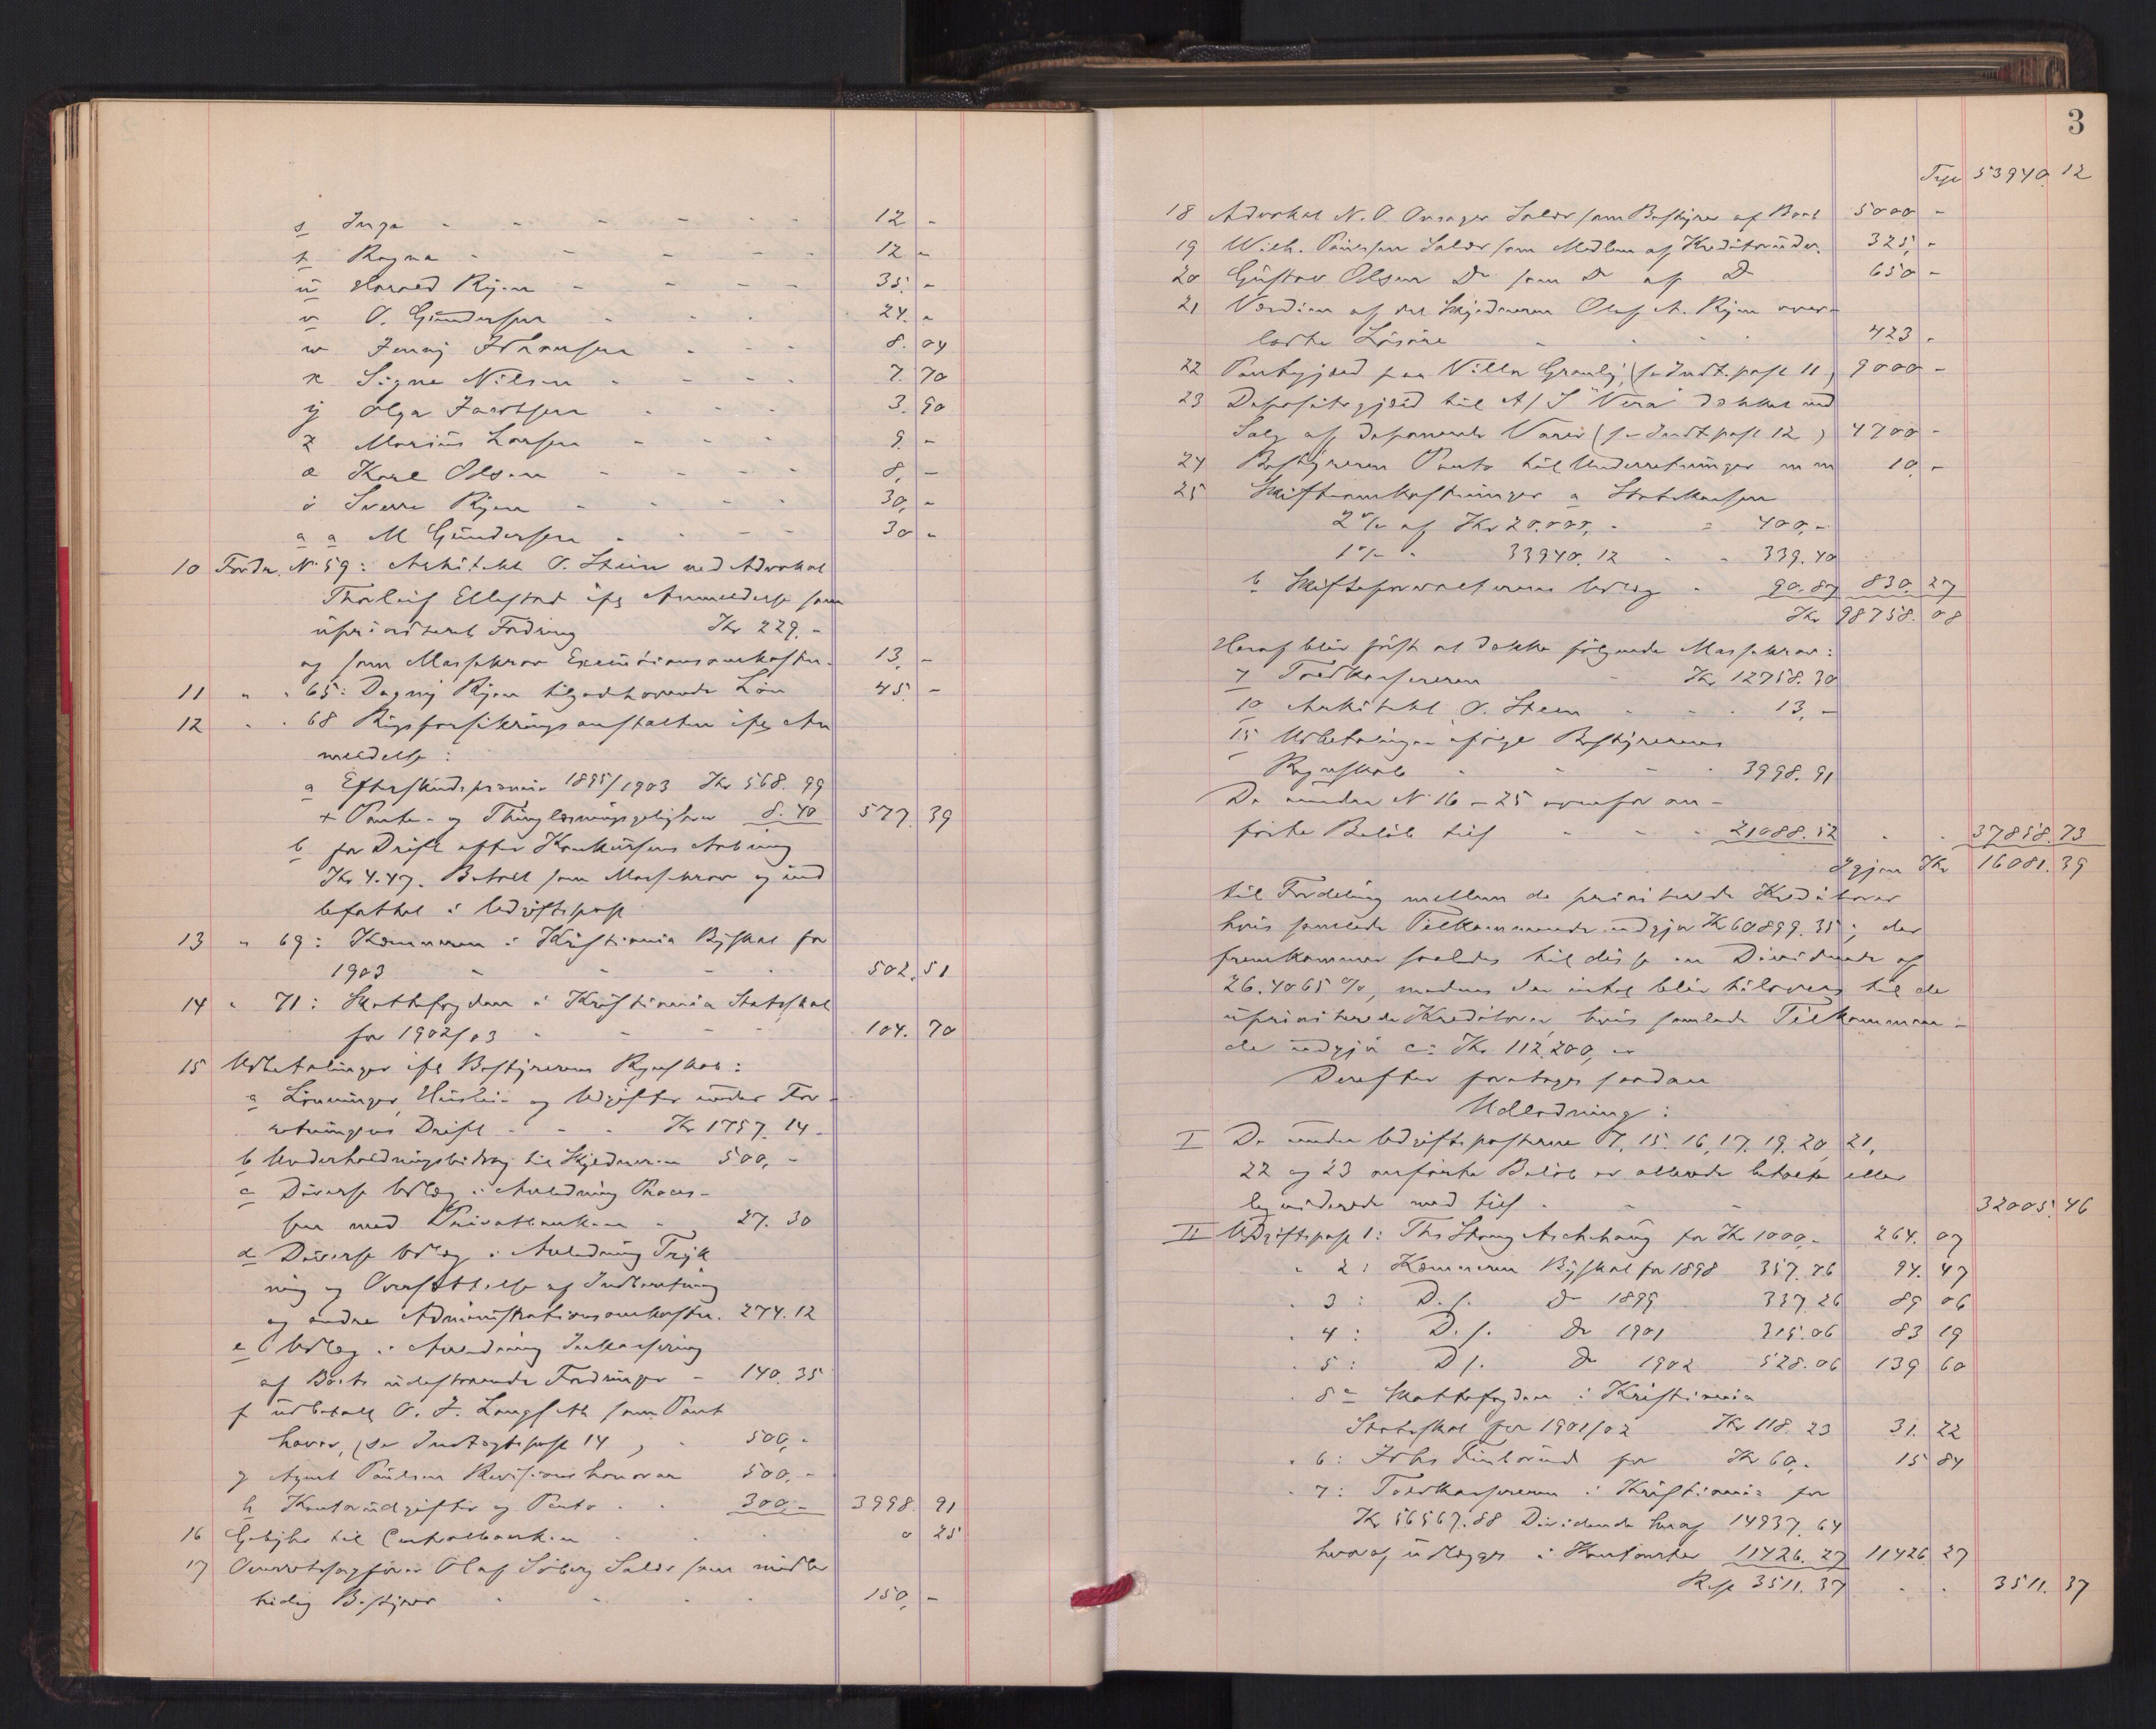 s Inga - - - - - - 12 -
t Ragna - - - - - 12 -
u Harald Rijen - - - - 35. -
v O. Gundersen - - - 24. -
w Jenny Johansen - - - 8. 04
x Signe Nilsen - - - - 7. 70
y Olga Jacobsen - - - 3. 90
z Marius Larsen - - - - 9. -
æ Karl Olsen - - - - 8, -
ö Sverre Rijen - - - - 30, -
a a M Gundersen - - - - 30 -
10 Fordr. No 59: Arkitekt O. Stein ved Advokat
Thorleif Ellestad ifg Anmeldelse som
uprioritert Fordring Kr 229. -
og som Massekrav Executionsomkostn. 13, -
11 " " 65: Dagny Rijen tilgodehavende Løn 45. -
12 " " 68 Rigsforsikringsanstalten ifg An
meldelse:
a Efterskudspræmie 1895/1903 Kr 568. 99
+ Pante- og Thinglæsningsgebyhrer 8. 40 577. 39
b for Drift efter Konkursens Aabning
Kr 4.47. Betalt som Massekrav og ind
befattet i Udgiftspost
13 " 69: Kæmneren i Kristiania Byskat for
1903 - - - - 502. 51
14 " 71: Skattefogden i Kristiania Statsskat
for 1902/03 - - - - 104. 70
15 Udbetalinger ifg Bestyrerens Regnskab:
a Lønninger, Husleie og Udgifter under For-
retningens Drift - - - Kr 1757. 14 -
b Underholdningsbidrag til Skyldneren 500, -
c Diverse Udlæg i Anledning Proces-
sen med Privatbanken - 27. 30
d Diverse Udlæg i Anledning Tryk
ning og Oversættelse af Indberetning
og andre Administrationsomkostn. 274. 12
e Udlæg i Anledning Inkassering
af Boets udestaaende Fordringer - 140. 35
f udbetalt O. J. Langseth som Pant
haver, (se Indtægtspost 14) - 500, -
g Agent Paulsen Revisionshonorar 500, -
h Kontorudgifter og Porto - - 300, - 3998. 91
16 Gebyhr til Centralbanken - - - 0 25
17 Overretssagfører Olaf Söberg Salær som midler
tidig Bestyrer - - - - 150, -
3
Trsp 53940. 12
18 Advokat N. O. Onsager Salær som Bestyrer af Boet 5000 -
19 Wilh. Paulsen Salær som Medlem af Kreditorudv. 325, -
20 Gustav Olsen Do som Do af Do 650 -
21 Værdien af det Skyldneren Olaf A. Rijen over-
ladte Løsøre - - - 423 -
22 Pantegjæld paa Villa Granly, (se Indt. post 11) 9000 -
23 Depositogjæld til A/S "Vera" dækket ved
Salg af deponerede Varer (se Indt post 12) 4700 -
24 Bestyrerens Porto til Underretninger m m 10, -
25 Skifteomkostninger a Statskassen
2 % af Kr 20.000, - = 400, -
1 % - 33940. 12 - - 339. 40
b Skifteforvalterens Udlæg - 90. 87 830. 27
Kr 98758. 08
Heraf blir først at dække følgende Massekrav:
7 Toldkassereren - Kr 12758. 30
10 Arkitekt O. Stein - - - 13, -
15 Udbetalinger ifølge Bestyrerens
Regnskab - - - - 3998. 91
De under No 16 - 25 ovenfor an-
førte Beløb tils - - - 21088. 52 - - 37858. 73
Igjen Kr 16081. 39
til Fordeling mellem de prioriterede Kreditorer
hvis samlede Tilkommende udgjør Kr 60899. 35; der
fremkommer saaledes til disse en Dividende af
26.4065 %, medens der intet blir tilovers til de
uprioriterede Kreditorer hvis samlede Tilkommen-
de udgjør ca Kr 112.200, -
Derefter foretages saadan
Udlodning:
I De under Udgiftsposterne 7. 15. 16, 17. 19. 20, 21,
22 og 23 anførte Beløb er allerede betalte eller
liqviderede med tils - - - 32005. 46
II Udgiftspost 1: Ths Strang Aschehoug for Kr 1000, - 264. 07
" 2: Kæmneren Byskat for 1898 357. 76 94. 47
" 3: D. s. Do 1899 337. 26 89 06
" 4: D. s. Do 1901 315. 06 83 19
" 5: D s. Do 1902 528. 06 139 60
" 8a Skattefogden i Kristiania
Statsskat for 1901/02 Kr 118. 23 31. 22
" 6: Johs for Kr 60, - 15 84
" 7: Toldkassereren i Kristiania for
Kr 56567. 88 Dividende heraf 14937. 64
hvoraf udlægges i Kontanter 11426. 27 11426. 27
Rest 3511. 37 - - 3511. 37